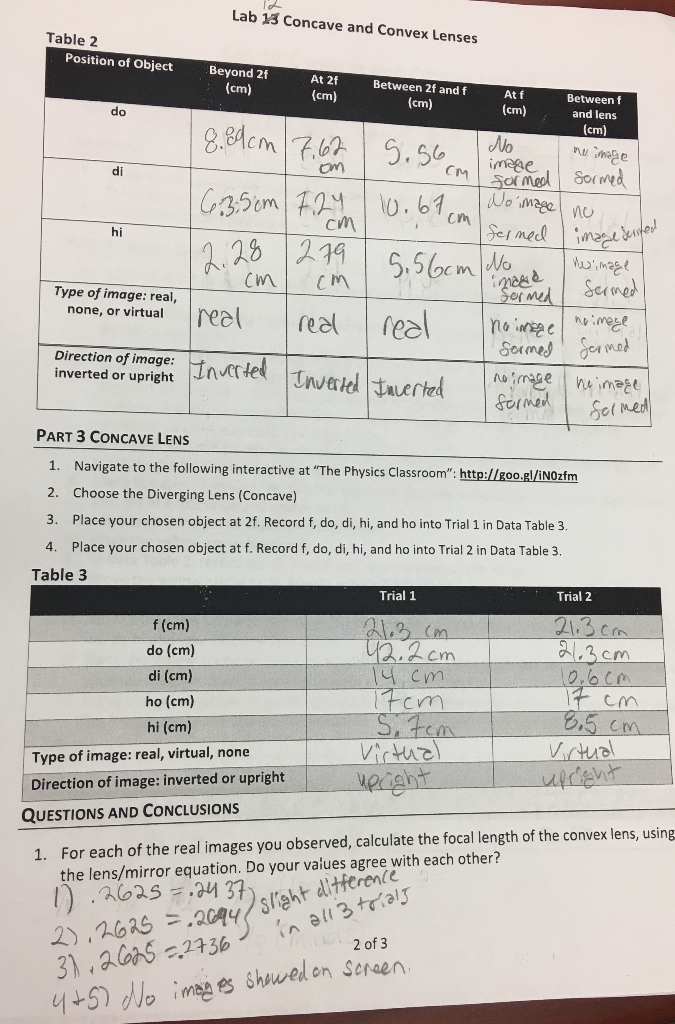 12
Lab 13 Concave and Convex Lenses
Table 2
Position of Object Beyond 2f (cm) At 2f (cm) Between 2f and f (cm) At f (cm) Between f and lens (cm)
do 8.89cm 7.62 cm 5.56 cm No image formed no image formed
di 6.35cm 7.24 cm 10.67 cm No image formed no image formed
hi 2.28 cm 2.79 cm 5.56cm No image formed No image formed
Type of image: real, none, or virtual real real real no image formed no image formed
Direction of image: inverted or upright Inverted Inverted Inverted no image formed no image formed
PART 3 CONCAVE LENS
1. Navigate to the following interactive at "The Physics Classroom": http://goo.gl/iN0zfm
2. Choose the Diverging Lens (Concave)
3. Place your chosen object at 2f. Record f, do, di, hi, and ho into Trial 1 in Data Table 3.
4. Place your chosen object at f. Record f, do, di, hi, and ho into Trial 2 in Data Table 3.
Table 3
Trial 1 Trial 2
f (cm) 21.3 cm 21.3 cm
do (cm) 42.2 cm 21.3 cm
di (cm) 14 cm 10.6 cm
ho (cm) 17cm 17 cm
hi (cm) 5.7cm 8.5 cm
Type of image: real, virtual, none Virtual Virtual
Direction of image: inverted or upright upright upright
QUESTIONS AND CONCLUSIONS
1. For each of the real images you observed, calculate the focal length of the convex lens, using
the lens/mirror equation. Do your values agree with each other?
1) .2625 = .2437
2) .2625 = .2694
3) .2625 = .2736
slight difference
in all 3 trials
2 of 3
4+5) No images showed on screen.